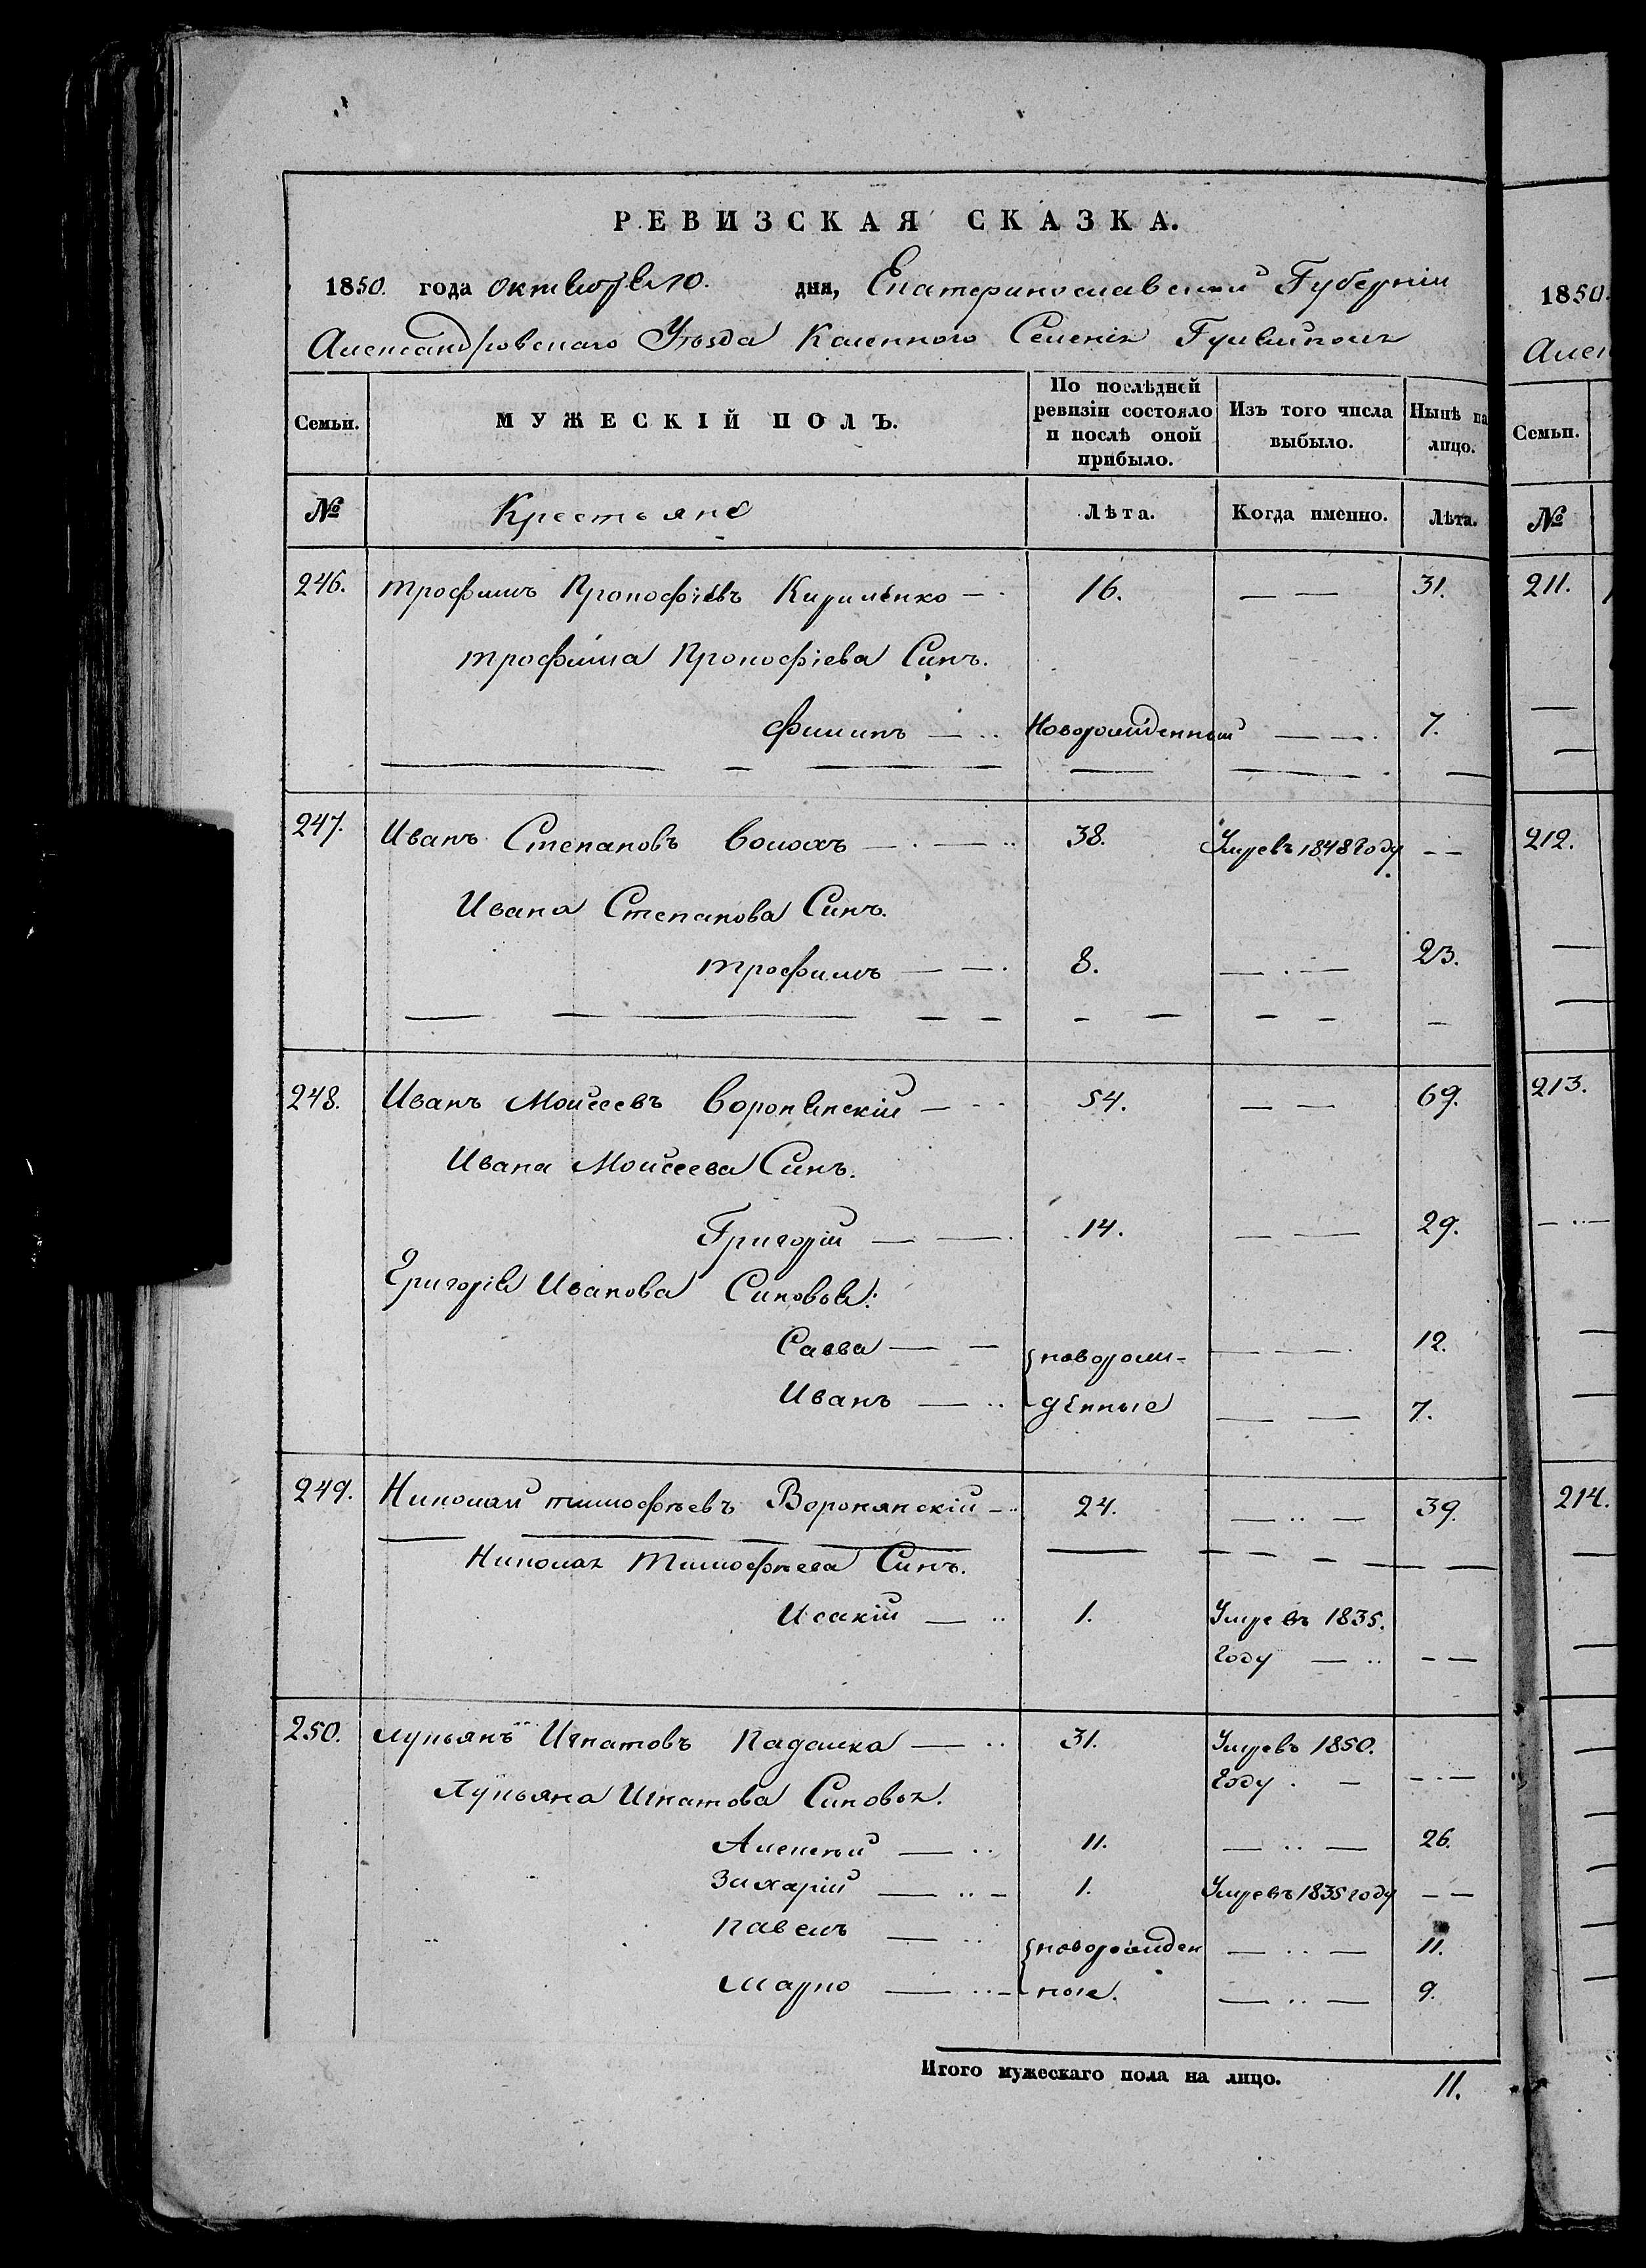 РЕВИЗСКАЯ СКАЗКА.
1850. года октября 10. дня, Екатеринославской Губерніи
Александровскаго Уѣзда Казенного Селенія Гуляйполя
Семьи.
МУЖЕСКІЙ ПОЛЪ.
По послѣдней ревизіи состояло и послѣ оной прибыло.
Изъ того числа выбыло.
Нынѣ на лицо.
№ Крестьяне Лѣта. Когда именно. Лѣта.
246. Трофимъ Прокофіевъ Кириленко — 16. — — 31.
Трофима Прокофіева Синъ.
Филипъ — Новорожденный — — 7.
247. Иванъ Степановъ Волохъ — 38. Умре въ 1848 году — —
Ивана Степанова Синъ.
Трофимъ — — 8. — — 23.
248. Иванъ Моисеевъ Воронянскій — 54. — — 69.
Ивана Моисеева Синъ.
Григорій — — 14. — — 29.
Григорія Иванова Синовья:
Савва — — новорож- — — 12.
Иванъ — денные — — 7.
249. Николай Тимофѣевъ Воронянскій — 24. — — 39.
Николая Тимофѣева Синъ.
Исакій — 1. Умре въ 1835.
году — — —
250. Лукьянъ Игнатовъ Падалка — 31. Умре въ 1850.
году. — — —
Лукьяна Игнатова Синовья.
Алексѣй — 11. — — 26.
Захарій — 1. Умре въ 1835 году — —
Павелъ — новорожден — — 11.
Марко — ные. — — 9.
Итого мужескаго пола на лицо. 11.
1850.
Семьи.
№
211.
212.
213.
214.